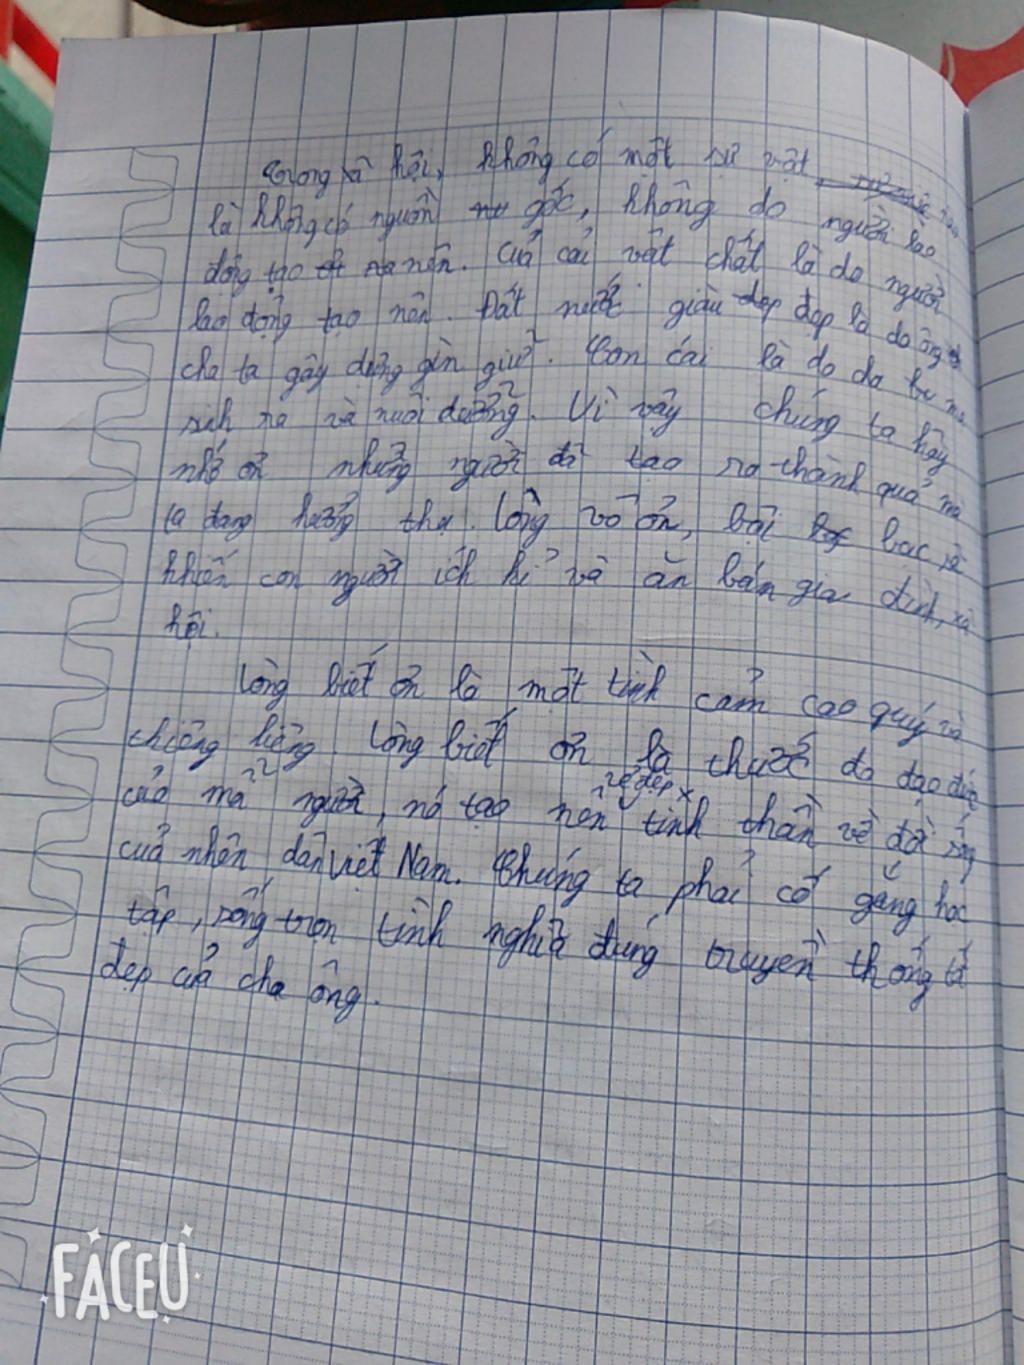 Trong xã hội, không có một sự vật nào
là không có nguồn gốc, không do người lao
động tạo nên. Của cải vật chất là do người
lao động tạo nên. Đất nước giàu đẹp là do ông
cha ta gây dựng gìn giữ. Con cái là do do bố mẹ
sinh ra và nuôi dưỡng. Vì vậy chúng ta hãy
nhớ ơn những người đã tạo ra thành quả mà
ta đang hưởng thụ. Lòng vô ơn, bội bạc sẽ
khiến con người ích kỉ và ăn bám gia đình, xã
hội.
Lòng biết ơn là một tình cảm cao quý và
thiêng liêng. Lòng biết ơn là thước đo đạo đức
của mỗi người, nó tạo nên vẻ đẹp tinh thần về đời sống
của nhân dân Việt Nam. Chúng ta phải cố gắng học
tập, sống trọn tình nghĩa đúng truyền thống tốt
đẹp của cha ông.
FACEU